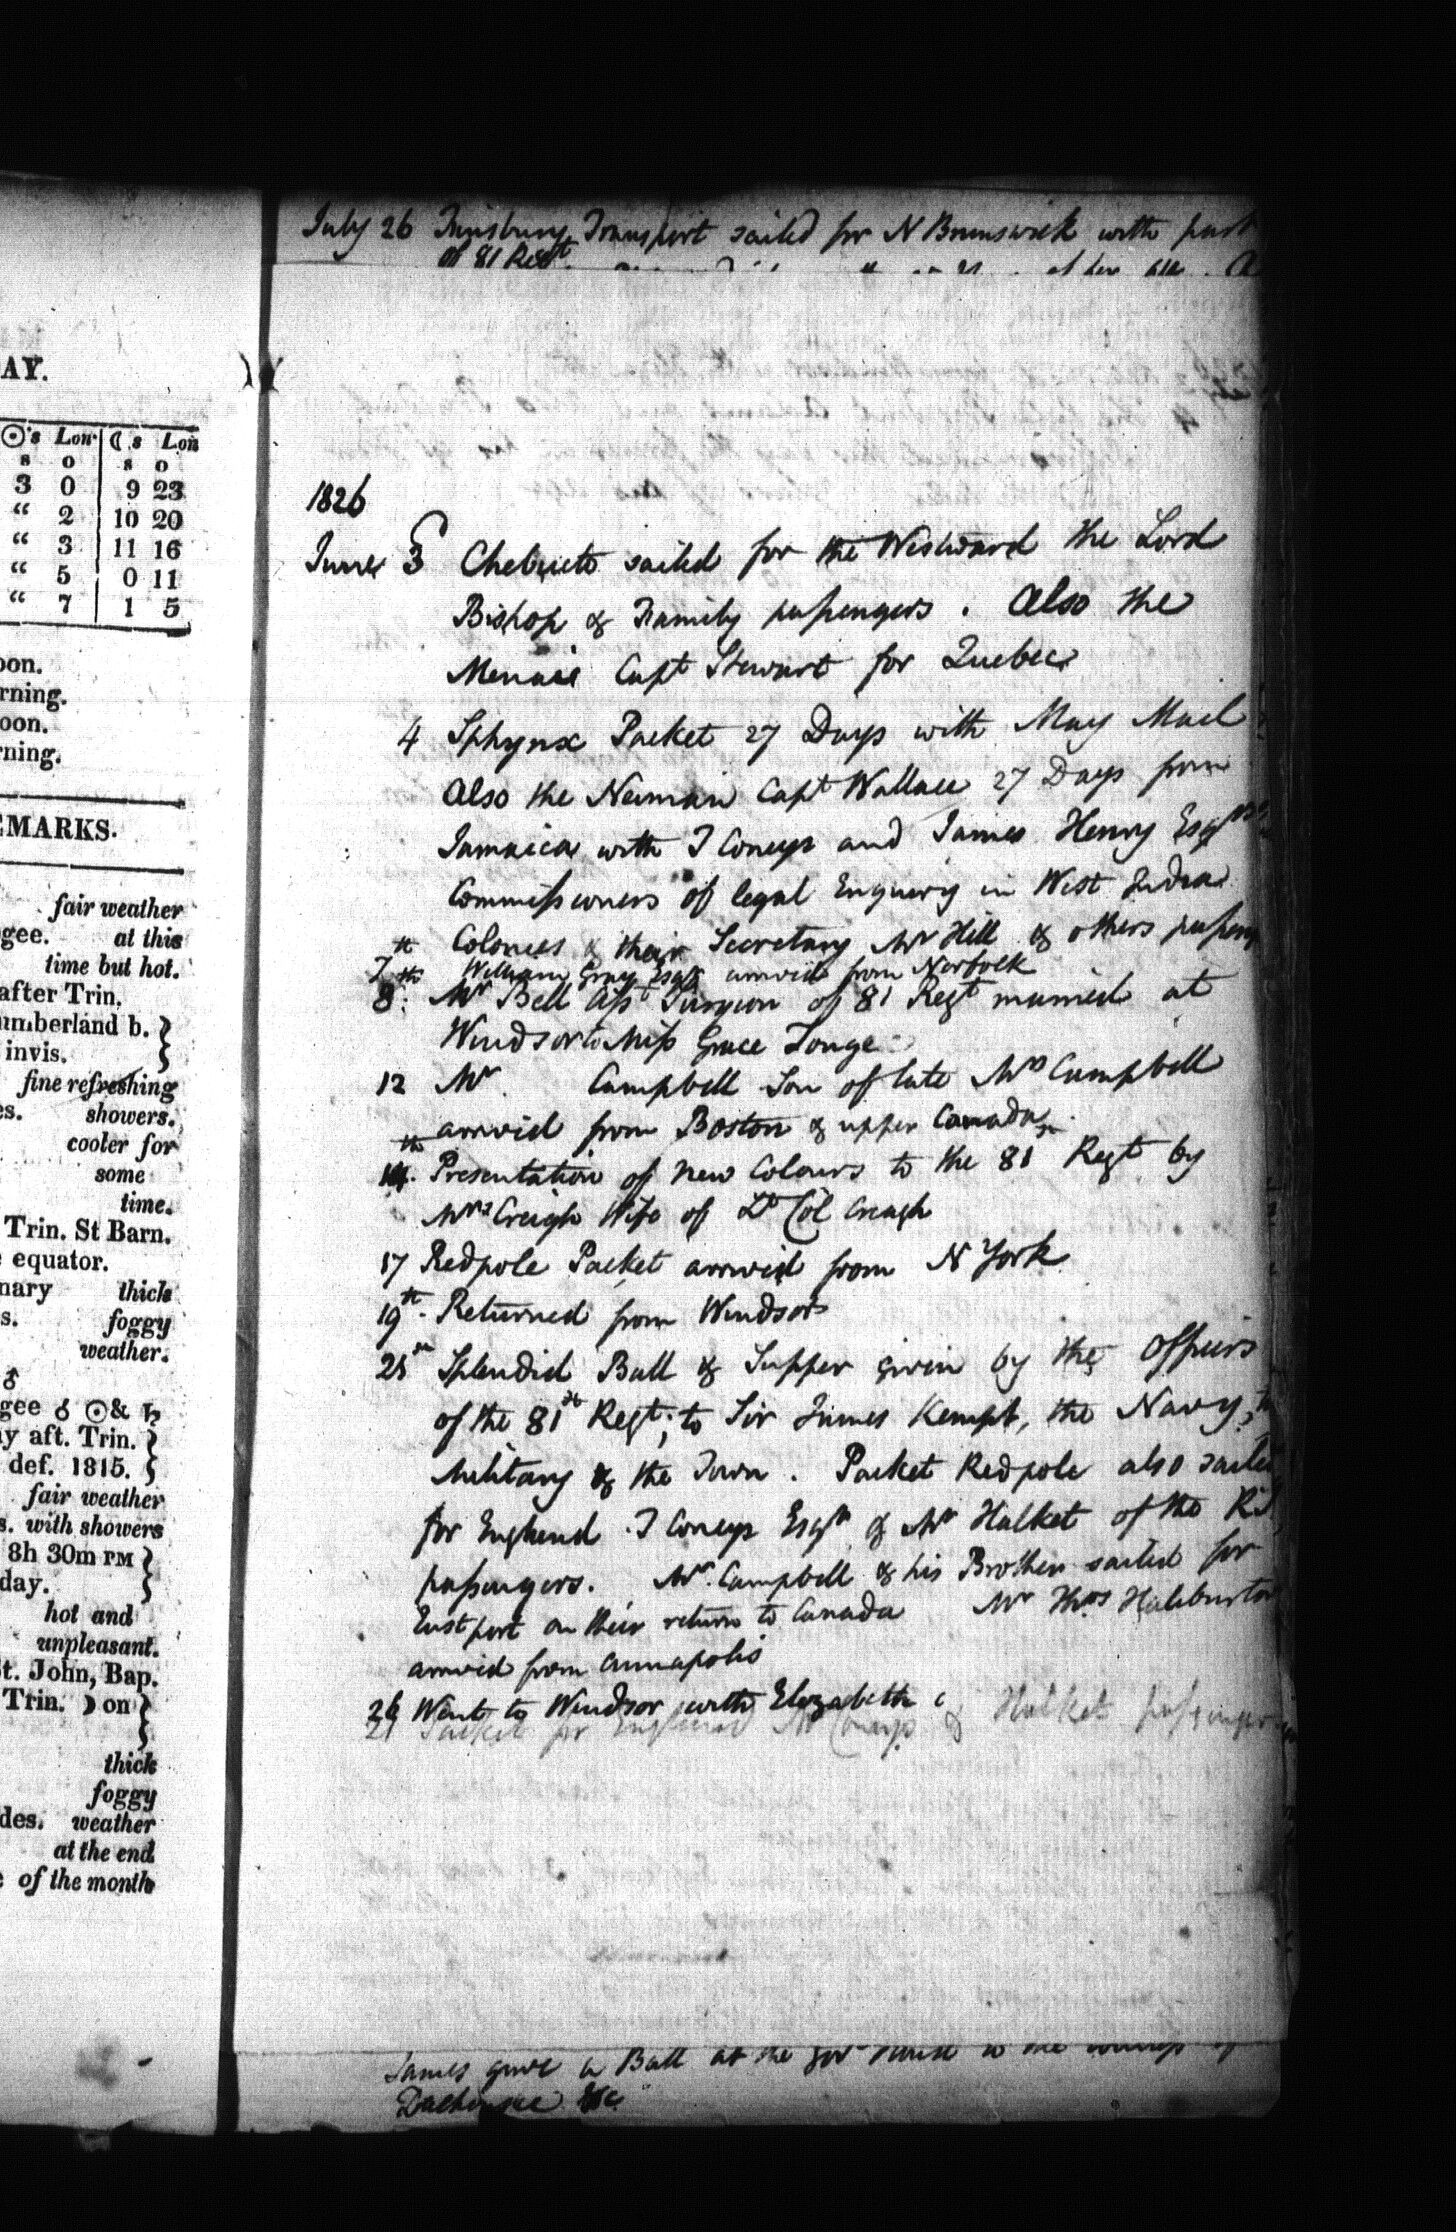 AY.
☉'s Lon. ☾'s Lon
s o s o
3 0 9 23
“ 2 10 20
“ 3 11 16
“ 5 0 11
“ 7 1 5
oon.
rning.
oon.
rning.
EMARKS.
fair weather
gee. at this
time but hot.
after Trin.
umberland b.
invis.
fine refreshing
es. showers.
cooler for
some
time.
Trin. St Barn.
equator.
nary thick
s. foggy
weather.
☌
gee ☌ ☉ & ♄
y aft. Trin.
def. 1815.
fair weather
s. with showers
8h 30m PM
day.
hot and
unpleasant.
t. John, Bap.
Trin. ☽ on
thick
foggy
des. weather
at the end
of the month
July 26 Transport sailed for N Brunswick with part
of 81 Regt
1826
June 3 Chebucto sailed for the Westward the Lord
Bishop & Family passengers. Also the
Menai Capt Stewart for Quebec
4 Sphynx Packet 27 Days with May Mail
Also the Neiman Capt Wallace 27 Days from
Jamaica with J Coneys and James Henry Esqrs
Commissioners of legal Enquiry in West India
Colonies & their Secretary Mr Hill & others passeng
7th William Gray Esqr arrived from Norfolk
8th Mr Bell Asst Surgeon of 81 Regt married at
Windsor to Miss Grace Tonge
12 Mr Campbell Son of late Mr Campbell
arrived from Boston & upper Canada
14th. Presentation of new Colours to the 81 Regt by
Mrs Creigh Wife of Lt Col Creagh
17 Redpole Packet arrived from N York
19th. Returned from Windsor
Splendid Ball & Supper given by the Officers
of the 81st Regt; to Sir James Kempt, the Navy,
Military & the Town. Packet Redpole also sailed
for England. J Coneys Esqr & Mr Halket of the
passengers. Mr. Campbell & his Brother sailed for
Eastport on their return to Canada Mr Thos Haliburton
arrived from Annapolis
26 Went to Windsor with Elizabeth
Packet for England Mr Coneys & Halket passengers
James gave a Ball at the Govt House to the
Dalhousie &c